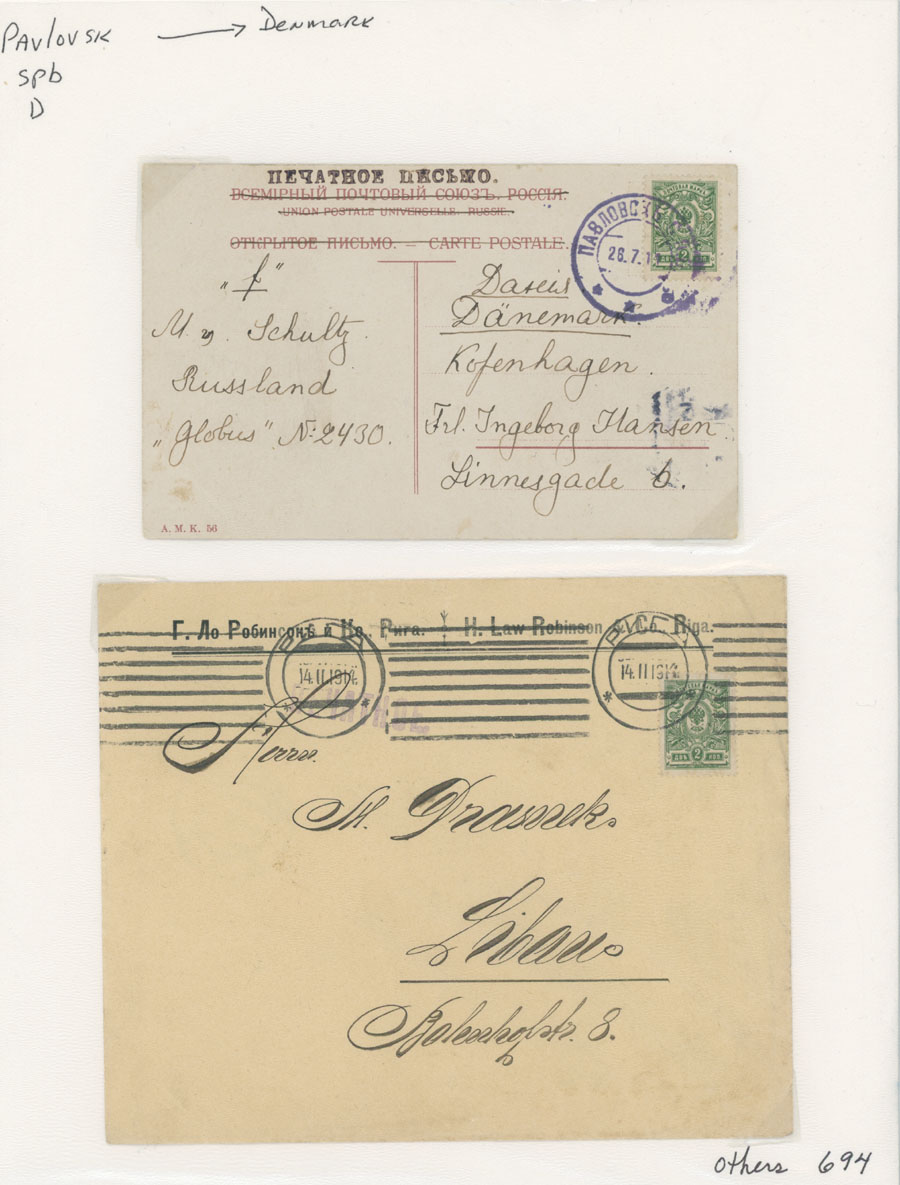 Pavlovsk → Denmark
Spb
D
ПЕЧАТНОЕ ПИСЬМО.
ВСЕМІРНЫЙ ПОЧТОВЫЙ СОЮЗЪ. РОССІЯ.
UNION POSTALE UNIVERSELLE. RUSSIE.
ОТКРЫТОЕ ПИСЬМО. — CARTE POSTALE.
ПАВЛОВСКЪ
26.7.1
Dänemark.
Kopenhagen.
Frl. Ingeborg Hansen
Linnesgade 6.
"f"
M. v. Schultz.
Russland
„Globus" N: 2430.
A. M. K. 56
Г. Ло Робинсонъ и Ко., Рига. H. Law Robinson & Co., Riga.
РИГА
14.II.1914
РИГА
14.II.1914
ПОЧТОВАЯ МАРКА
2
КОП.
Herrn
Libau.
8.
others 694